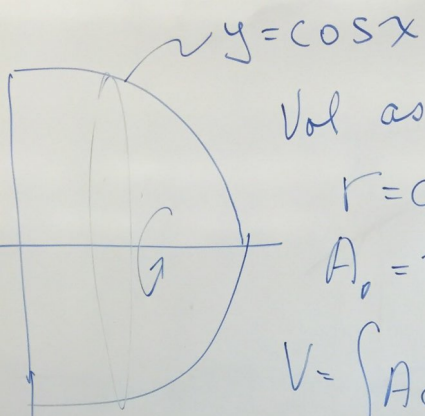 y=cosx
Vol as
r=c
A₀ =
V= ∫ A